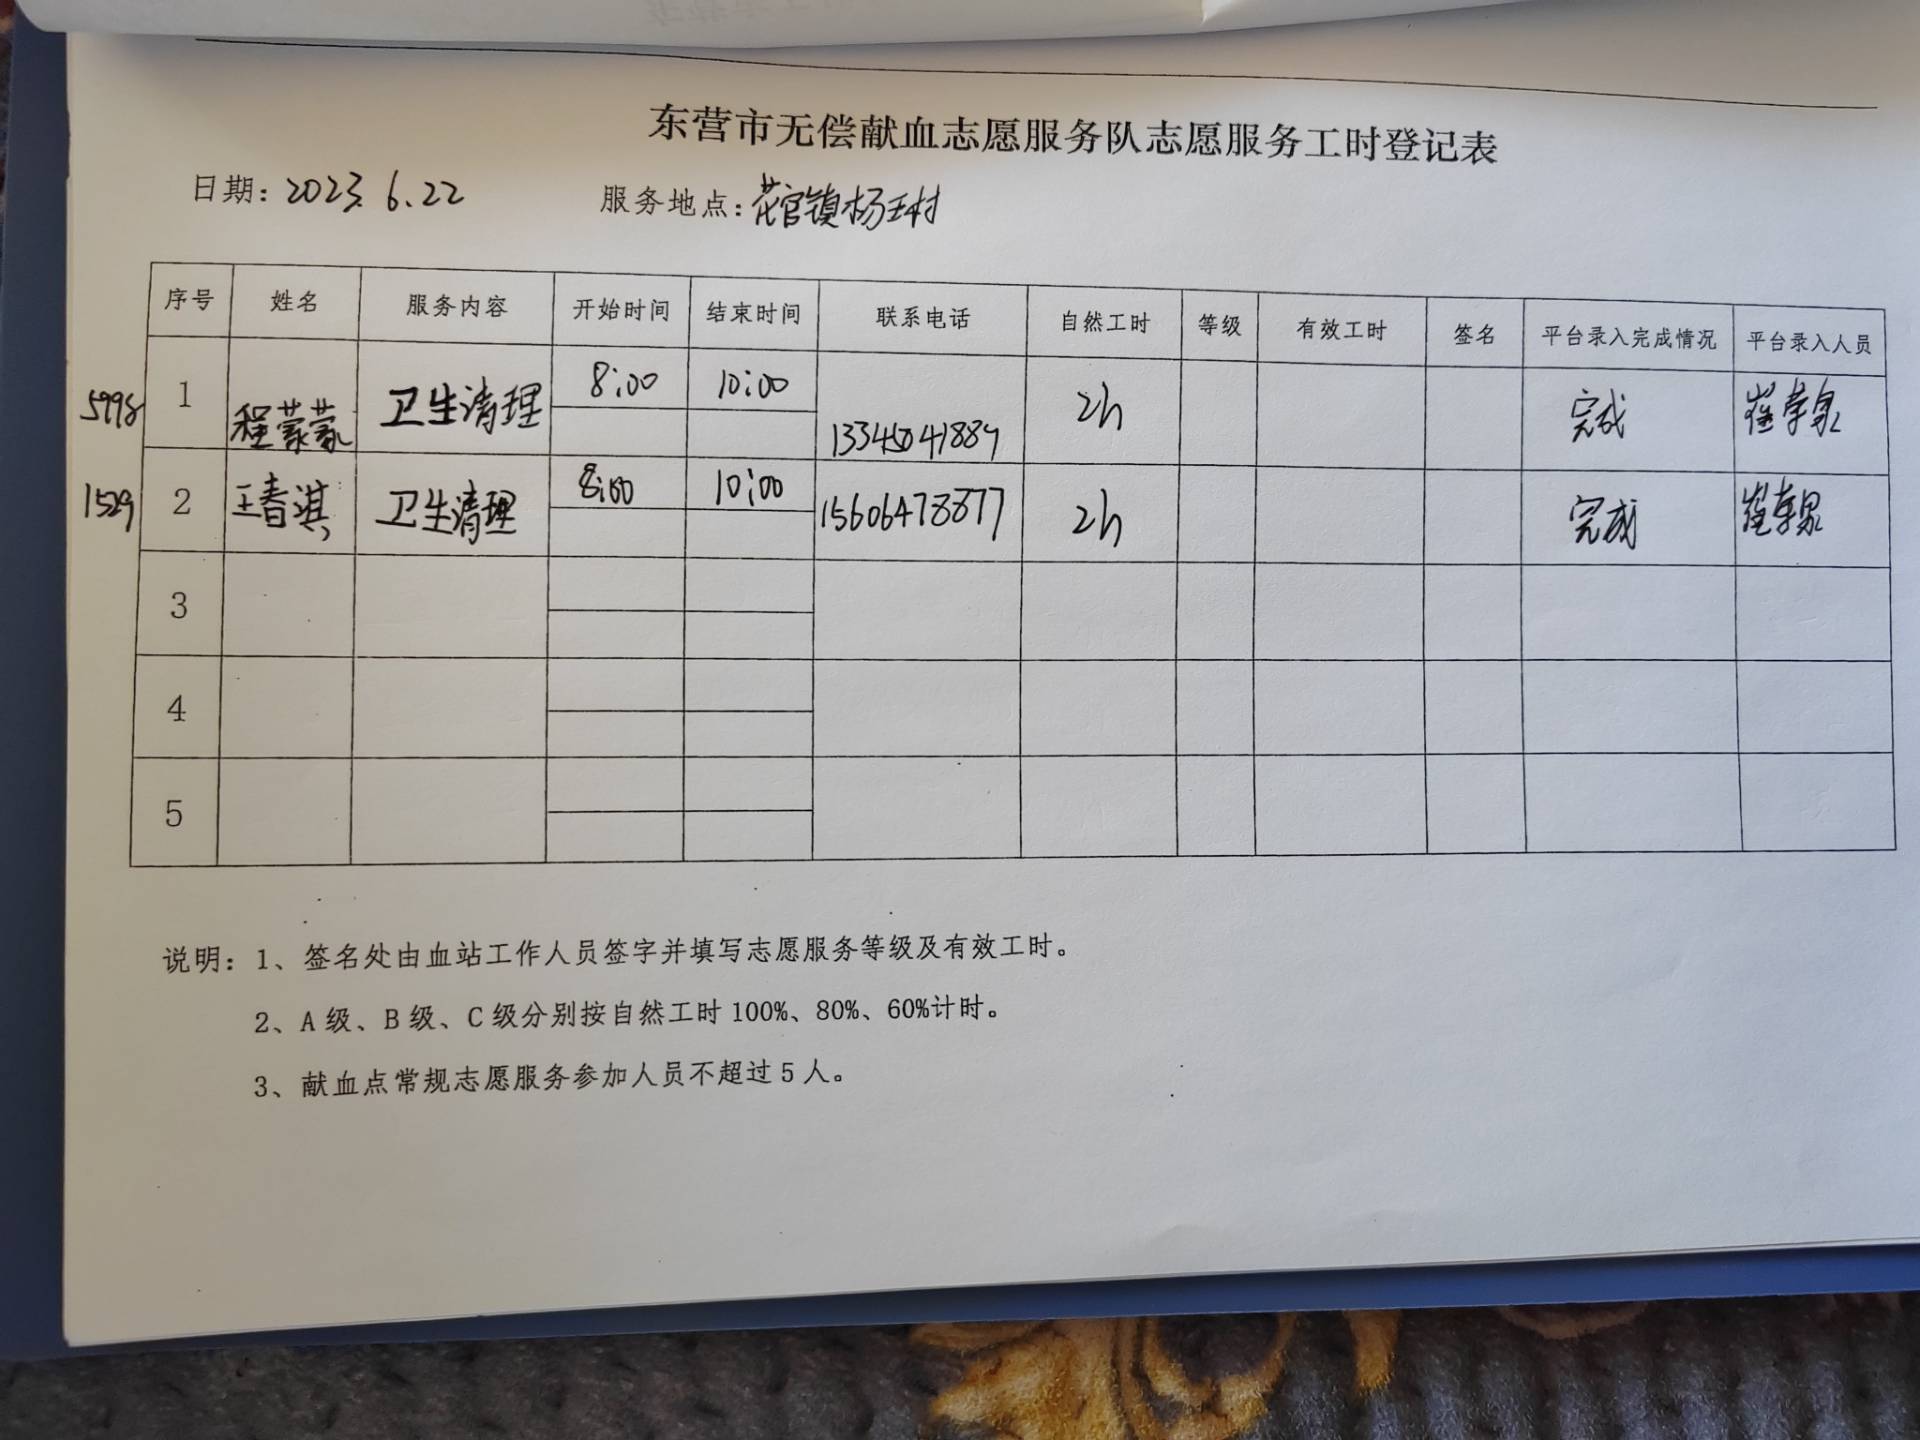 东营市无偿献血志愿服务队志愿服务工时登记表
日期: 2023.6.22 服务地点: 花官镇杨王村
序号 姓名 服务内容 开始时间 结束时间 联系电话 自然工时 等级 有效工时 签名 平台录入完成情况 平台录入人员
5998 1 程蒙蒙 卫生清理 8:00 10:00 2h 完成 崔孝泉
1529 2 王春淇 卫生清理 8:00 10:00 15606478877 2h 完成 崔孝泉
3
4
5
说明: 1、签名处由血站工作人员签字并填写志愿服务等级及有效工时。
2、A级、B级、C级分别按自然工时100%、80%、60%计时。
3、献血点常规志愿服务参加人员不超过5人。